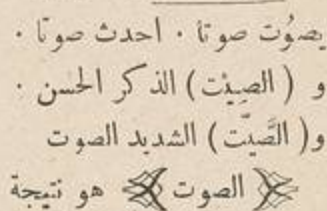 يصوُت صوتا . احدث صوتا .
و (الصِيْت) الذكر الحسن .
و (الصَّيِّت) الشديد الصوت
الصوت هو نتيجة